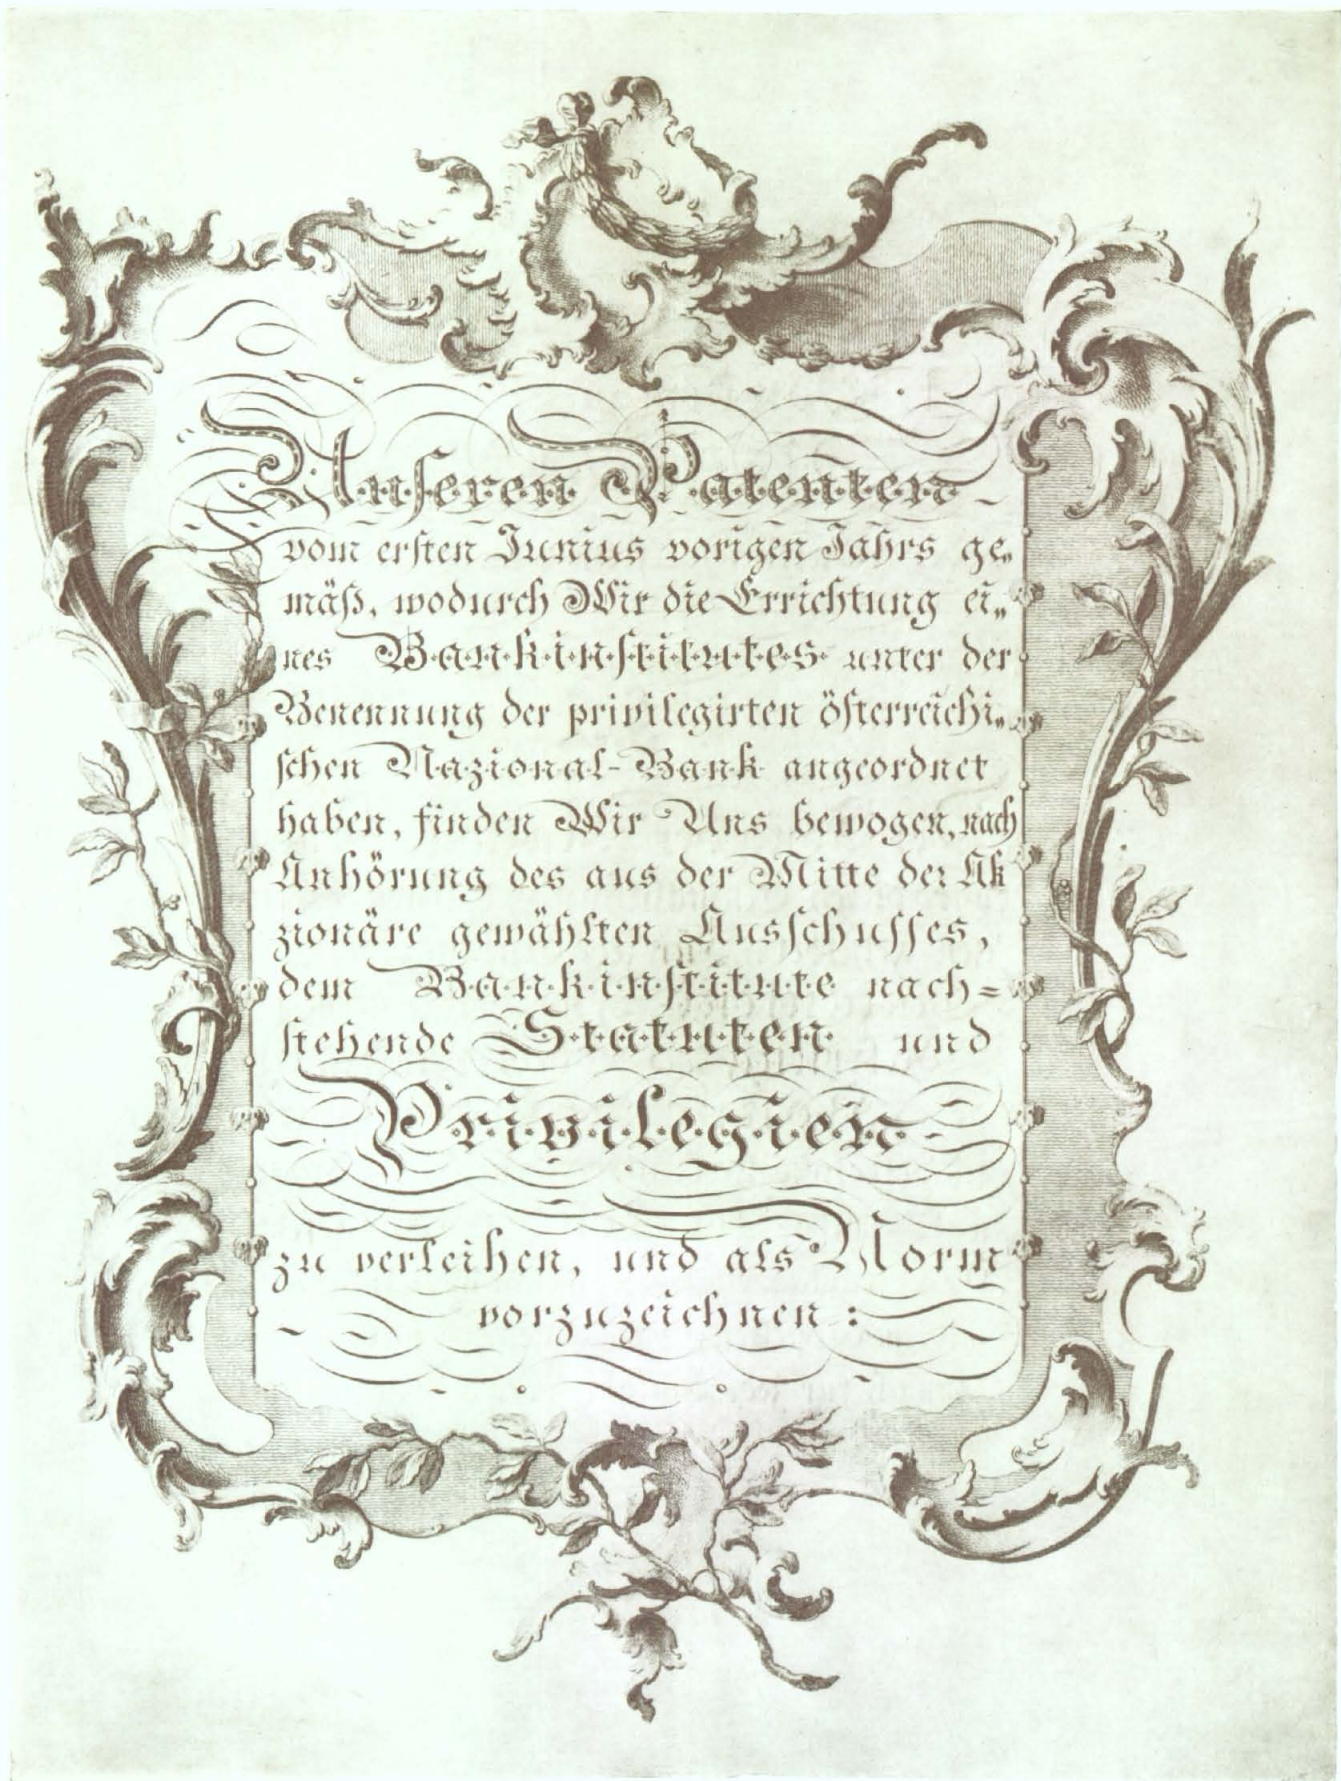 Unseren Patenten
vom ersten Junius vorigen Jahrs ge„
mäß, wodurch Wir die Errichtung ei„
nes Bankinstitutes unter der
Benennung der privilegirten österreichi„
schen Nazional-Bank angeordnet
haben, finden Wir Uns bewogen, nach
Anhörung des aus der Mitte der Ak
zionäre gewählten Ausschusses,
dem Bankinstitute nach=
stehende Statuten und
Privilegien
zu verleihen, und als Norm
vorzuzeichnen: